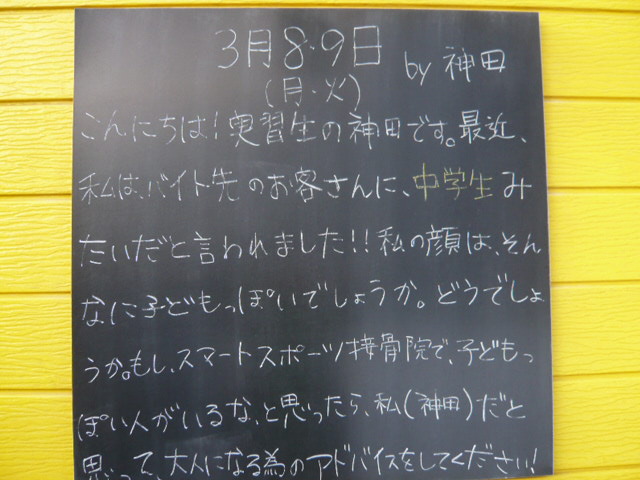 3月8・9日 by 神田
(月・火)
こんにちは!実習生の神田です。最近、
私は、バイト先のお客さんに、中学生み
たいだと言われました!!私の顔は、そん
なに子どもっぽいでしょうか。どうでしょ
うか。もし、スマートスポーツ接骨院で、子どもっ
ぽい人がいるな、と思ったら、私(神田)だと
思って、大人になる為のアドバイスをしてください!